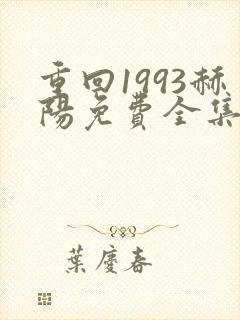 重回1993赫
陽免費全集
葉慶春